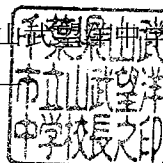 千葉県山武
市立山武望洋
中学校長之印